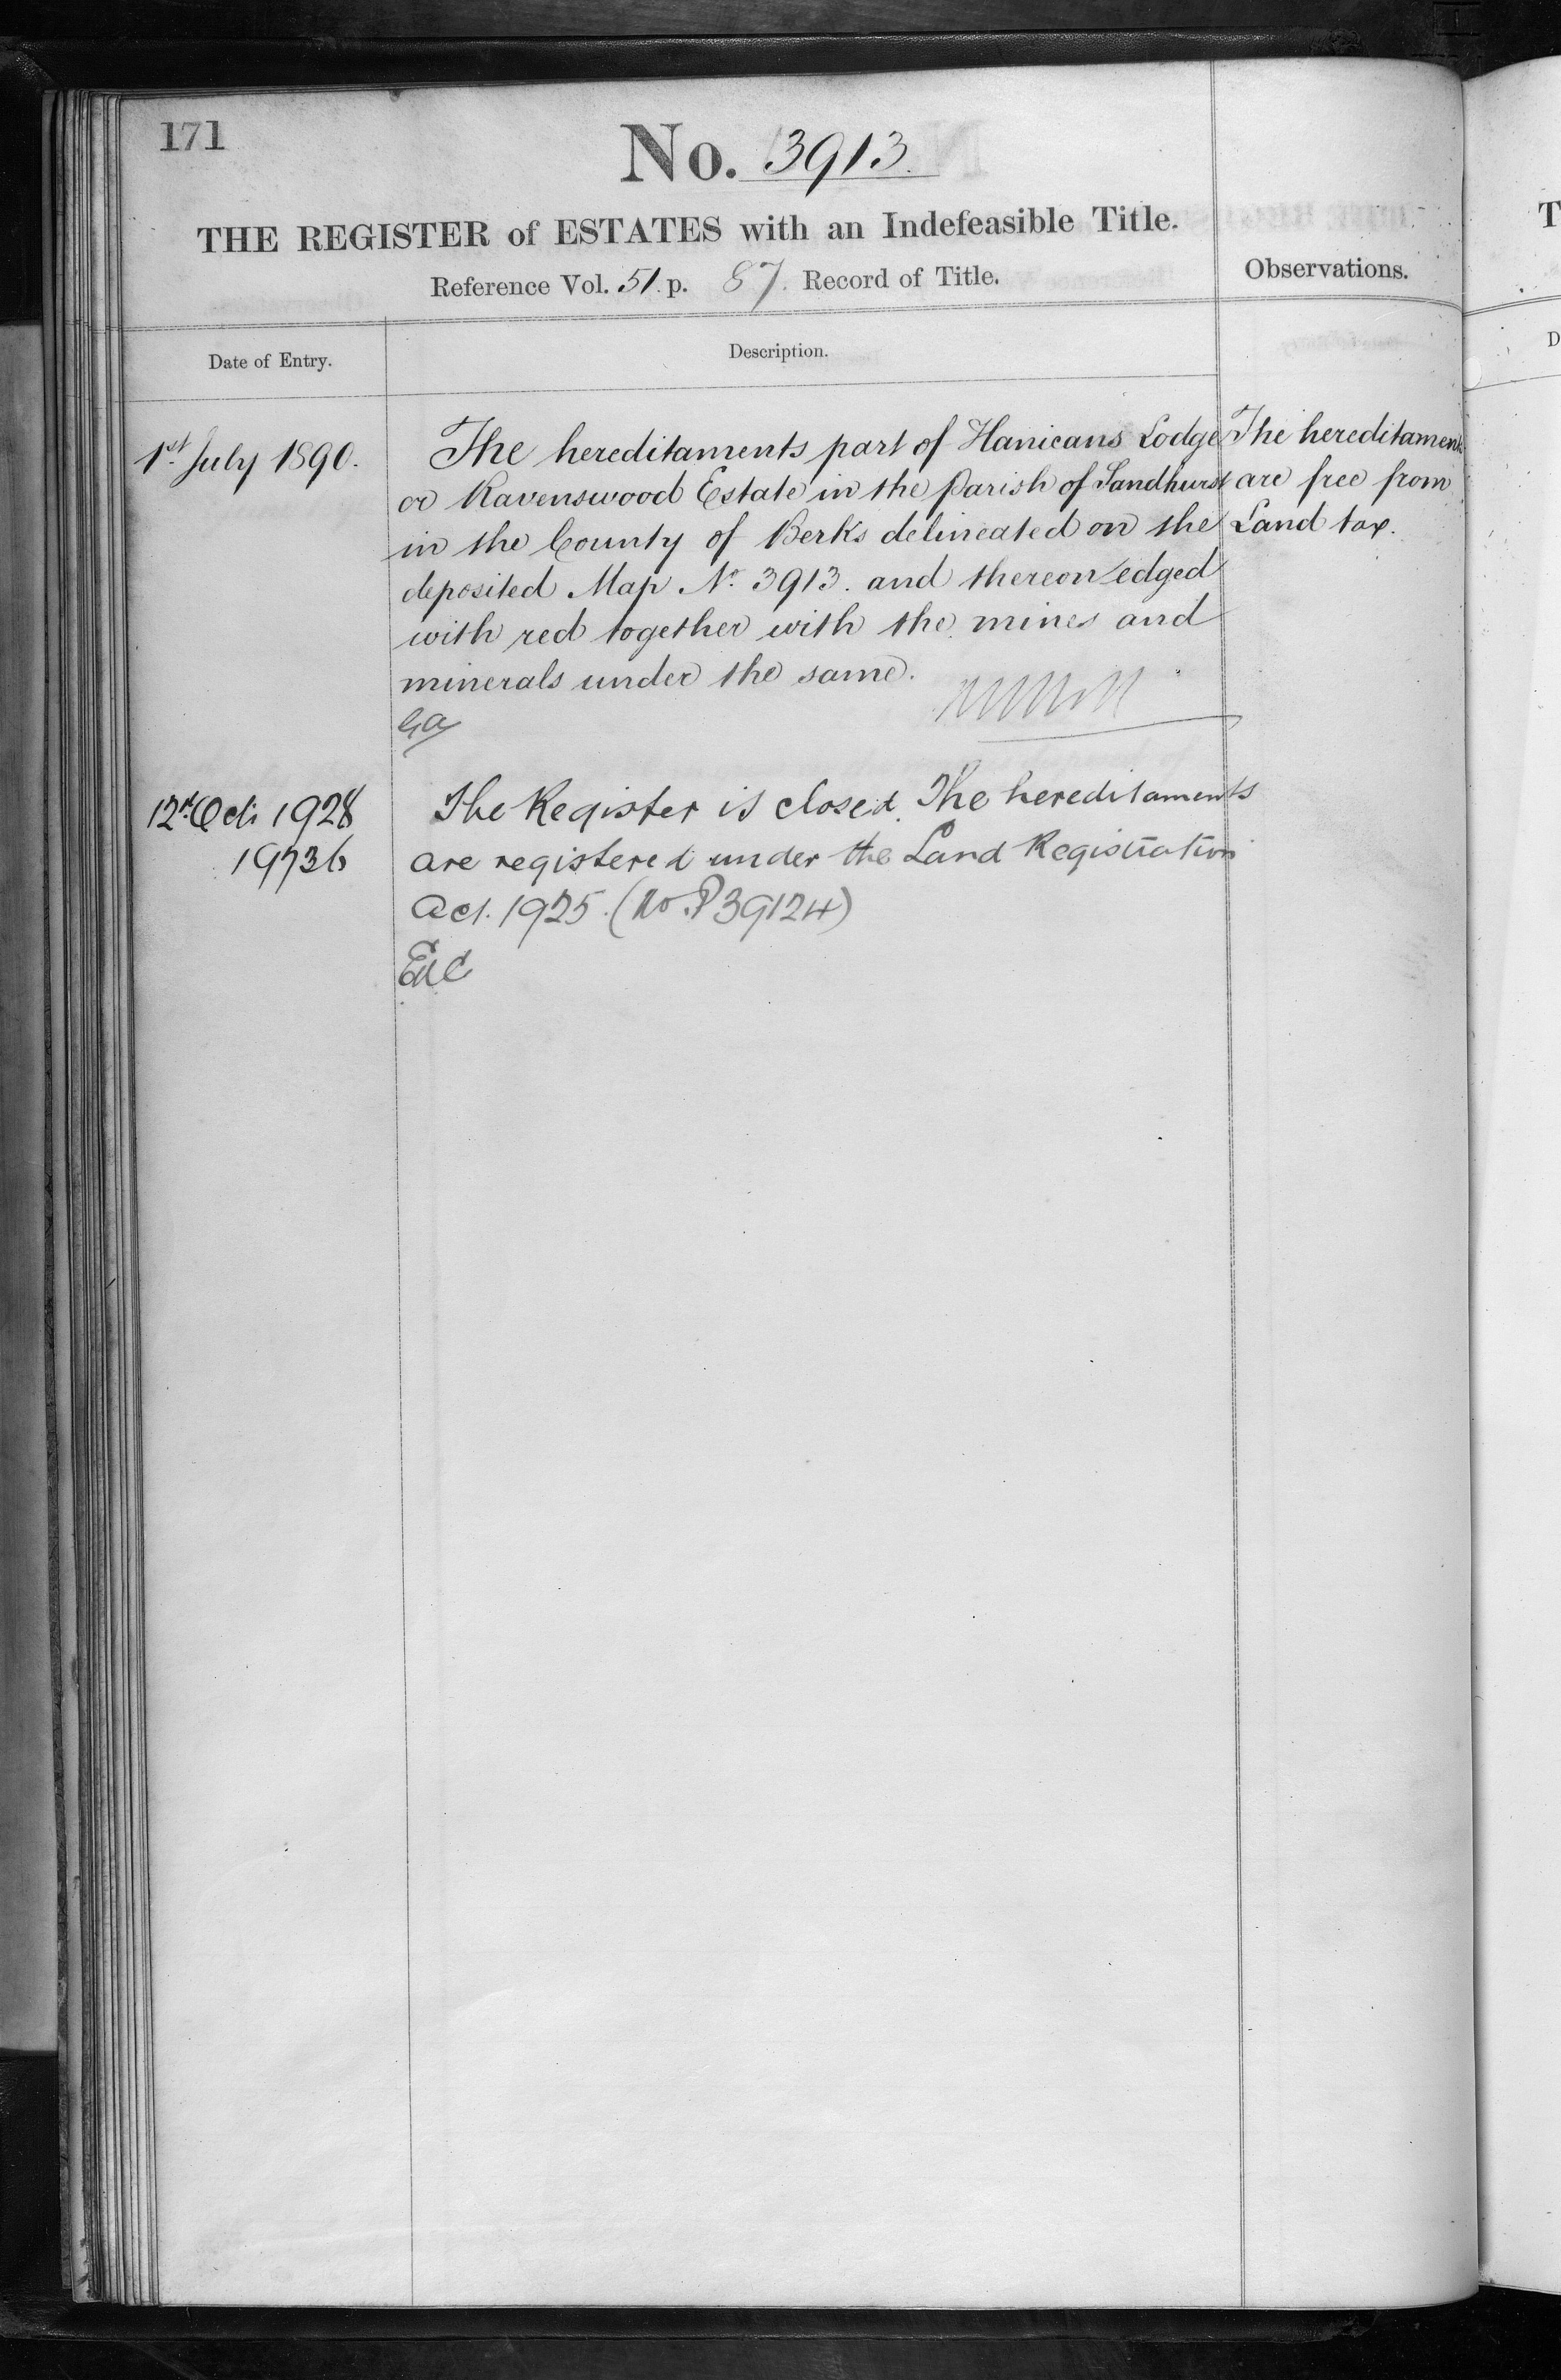 171
No. 3913.
THE REGISTER of ESTATES with an Indefeasible Title.
Reference Vol. 51. p. 87. Record of Title.
Observations.
Date of Entry.
Description.
1st July 1890.
The hereditaments part of Hanicans Lodge
or Ravenswood Estate in the Parish of Sandhurst
in the County of Berks delineated on the
deposited Map No. 3913. and thereon edged
with red together with the mines and
minerals under the same.
The hereditaments
are free from
Land tax.
12th Oct: 1928
19736
The Register is closed. The hereditaments
are registered under the Land Registration
Act. 1925. (No. P39124)